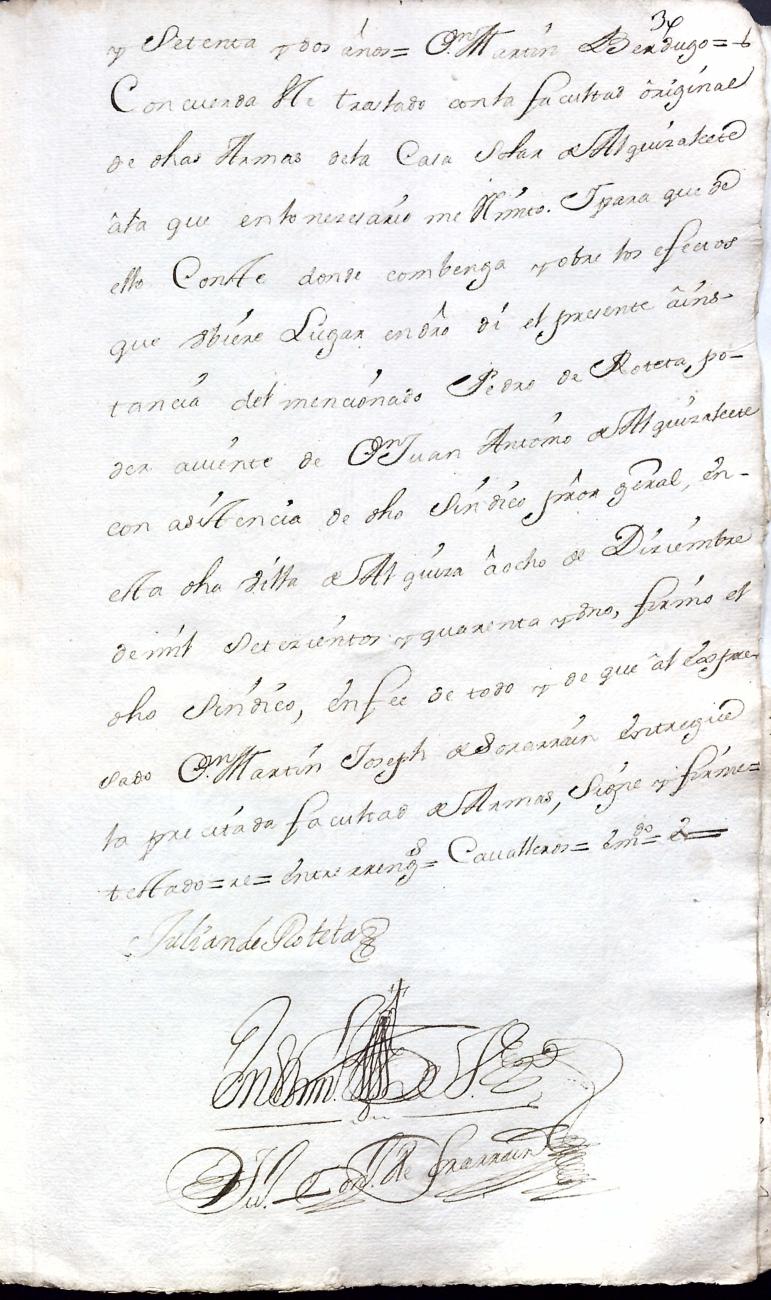 34
y Setenta y dos años= Dn Martin Berdugo=
Concuerda este traslado conla facultad original
de dhas Armas dela Casa Solar de Alquizalete
âta que enlo nezesario me Remito. Ypara que de
ello Conste donde combenga y obre los efectos
que Vbiere Lugar endro di el presente âins-
tancia del mencionado Pedro de Roteta, po-
der aviente de Dn Juan Antonio de Alquizalete
con asistencia de dho Sindico prôr geral, en-
esta dha Villa de Alquiza âocho de Diziembre
demil Setezientos y quarenta y Vno, firmo el
dho Sindico, enfee de todo y de que âl expre-
sado Dn Martin Joseph de Sorarrain entregue
la precitada facultad de Armas, Signe y firme=
testado=re= entrerreng.s= Cavalleros= emdo= e=
Julian de Roteta
En testim.o de V.
Ju. de Sorarrain